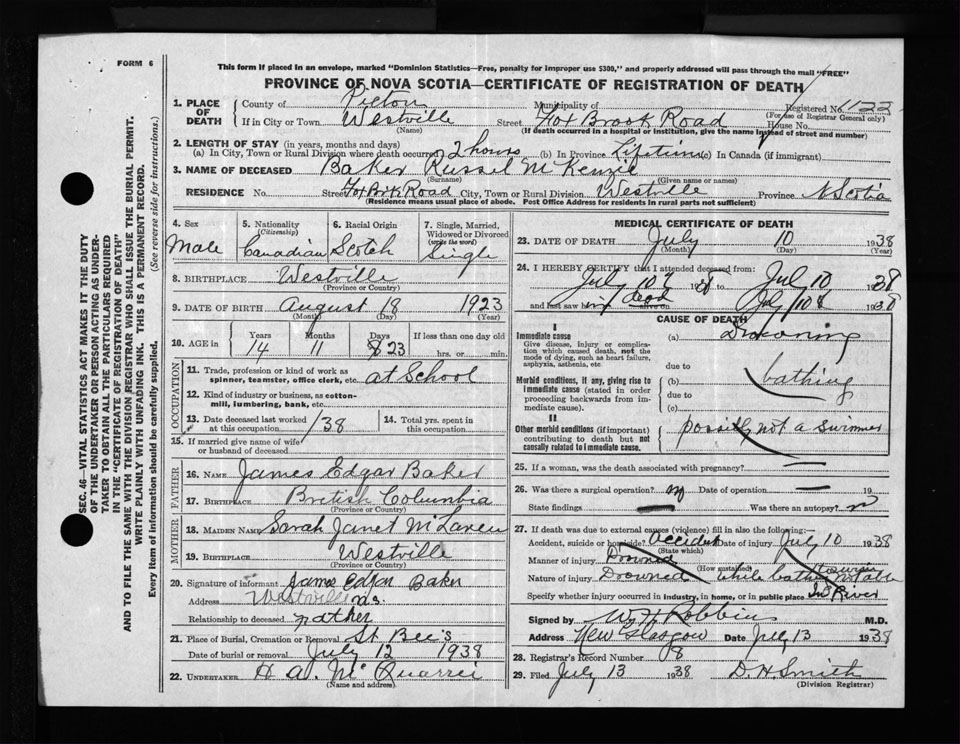 FORM 6
This form if placed in an envelope, marked "Dominion Statistics—Free, penalty for improper use $300," and properly addressed will pass through the mail "FREE"
PROVINCE OF NOVA SCOTIA—CERTIFICATE OF REGISTRATION OF DEATH
1. PLACE OF DEATH
County of Picton Municipality of Registered No. 1122
(For use of Registrar General only)
If in City or Town Westville Street Fox Brook Road House No.
(Name) (If death occurred in a hospital or institution, give the name instead of street and number)
2. LENGTH OF STAY (in years, months and days)
(a) In City, Town or Rural Division where death occurred 2 hours (b) In Province Lifetime (c) In Canada (if immigrant)
3. NAME OF DECEASED Baker Russel McKenzie
(Surname) (Given name or names)
RESIDENCE No. Street Fox Brk Road City, Town or Rural Division Westville Province N Scotia
(Residence means usual place of abode. Post Office Address for residents in rural parts not sufficient)
4. Sex
Male
5. Nationality (Citizenship)
Canadian
6. Racial Origin
Scotch
7. Single, Married, Widowed or Divorced (write the word)
Single
8. BIRTHPLACE Westville
(Province or Country)
9. DATE OF BIRTH August 18 1923
(Month) (Day) (Year)
10. AGE in
Years Months Days If less than one day old
14 11 23 hrs. or min.
OCCUPATION
11. Trade, profession or kind of work as spinner, teamster, office clerk, etc. at School
12. Kind of industry or business, as cotton-mill, lumbering, bank, etc.
13. Date deceased last worked at this occupation /38
14. Total yrs. spent in this occupation.
15. If married give name of wife or husband of deceased
FATHER
16. NAME James Edgar Baker
17. BIRTHPLACE British Coolumbia
(Province or Country)
MOTHER
18. MAIDEN NAME Sarah Janet McLaren
19. BIRTHPLACE Westville
(Province or Country)
20. Signature of informant James Edgar Baker
Address Westville N.S.
Relationship to deceased Father
21. Place of Burial, Cremation or Removal St Bee's
Date of burial or removal July 12 1938
22. UNDERTAKER H A. McQuarrei
(Name and address)
MEDICAL CERTIFICATE OF DEATH
23. DATE OF DEATH July 10 1938
(Month) (Day)
24. I HEREBY CERTIFY that I attended deceased from:
July 10th 1938 to July 10 1938
and last saw him dead July 10th 1938
CAUSE OF DEATH
I
Immediate cause
Give disease, injury or complication which caused death, not the mode of dying, such as heart failure, asphyxia, asthenia, etc
(a) Drowning
due to
Morbid conditions, if any, giving rise to immediate cause (stated in order proceeding backwards from immediate cause).
(b) bathing
due to
(c)
II
Other morbid conditions (if important) contributing to death but not causally related to immediate cause.
possibly not a swimmer
25. If a woman, was the death associated with pregnancy? —
26. Was there a surgical operation? no Date of operation — 19
State findings — Was there an autopsy? no
27. If death was due to external causes (violence) fill in also the following:
Accident, suicide or homicide? accident Date of injury July 10 1938
(State which)
Manner of injury Drowned
(How sustained)
Nature of injury Drowned while bathing
Specify whether injury occurred in industry, in home, or in public place In River
Signed by W H Robbins M.D.
Address New Glasgow Date July 13 1938
28. Registrar's Record Number 8
29. Filed July 13 1938 D. H. Smith
(Division Registrar)
SEC. 46—VITAL STATISTICS ACT MAKES IT THE DUTY
OF THE UNDERTAKER OR PERSON ACTING AS UNDER-
TAKER TO OBTAIN ALL THE PARTICULARS REQUIRED
IN THE "CERTIFICATE OF REGISTRATION OF DEATH"
AND TO FILE THE SAME WITH THE DIVISION REGISTRAR WHO SHALL ISSUE THE BURIAL PERMIT.
WRITE PLAINLY WITH UNFADING INK. THIS IS A PERMANENT RECORD.
Every item of information should be carefully supplied. (See reverse side for instructions.)